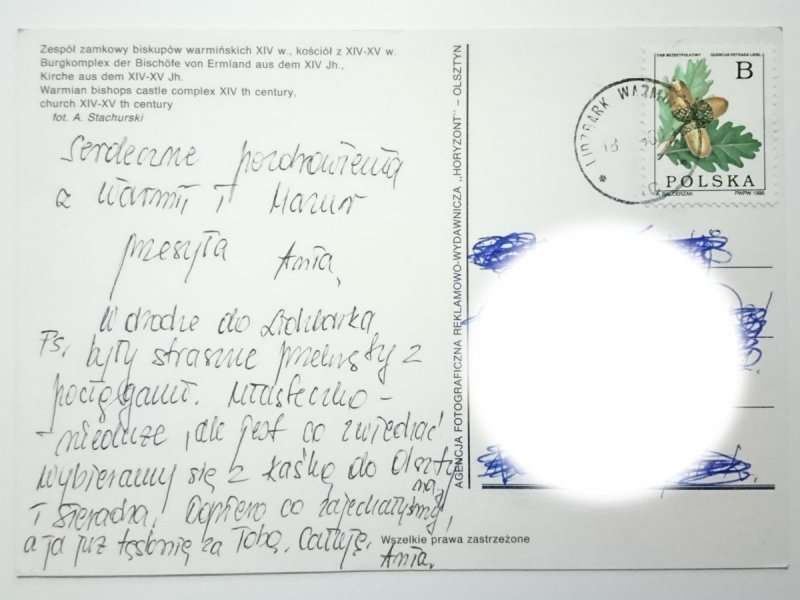 Zespół zamkowy biskupów warmińskich XIV w., kościół z XIV-XV w.
Burgkomplex der Bischöfe von Ermland aus dem XIV Jh.,
Kirche aus dem XIV-XV Jh.
Warmian bishops castle complex XIV th century,
church XIV-XV th century
fot. A. Stachurski
Serdeczne pozdrowienia
z Warmii i Mazur
przesyła Ania.
W drodze do Lidzbarka
Ps. były straszne przeboje z
pociągami. Miasteczko -
- nieduże, ale jest co zwiedzać
wybieramy się z Kaśką do Olszty
na,
i Sieradza. Dopiero co zajechałyśmy,
a ja już tęsknię za Tobą. Całuję.
Ania.
AGENCJA FOTOGRAFICZNA REKLAMOWO-WYDAWNICZA „HORYZONT” – OLSZTYN
Wszelkie prawa zastrzeżone
DĄB BEZSZYPUŁKOWY QUERCUS PETRAEA LIEBL.
B
POLSKA
PWPW 1995
* LIDZBARK WARM
18